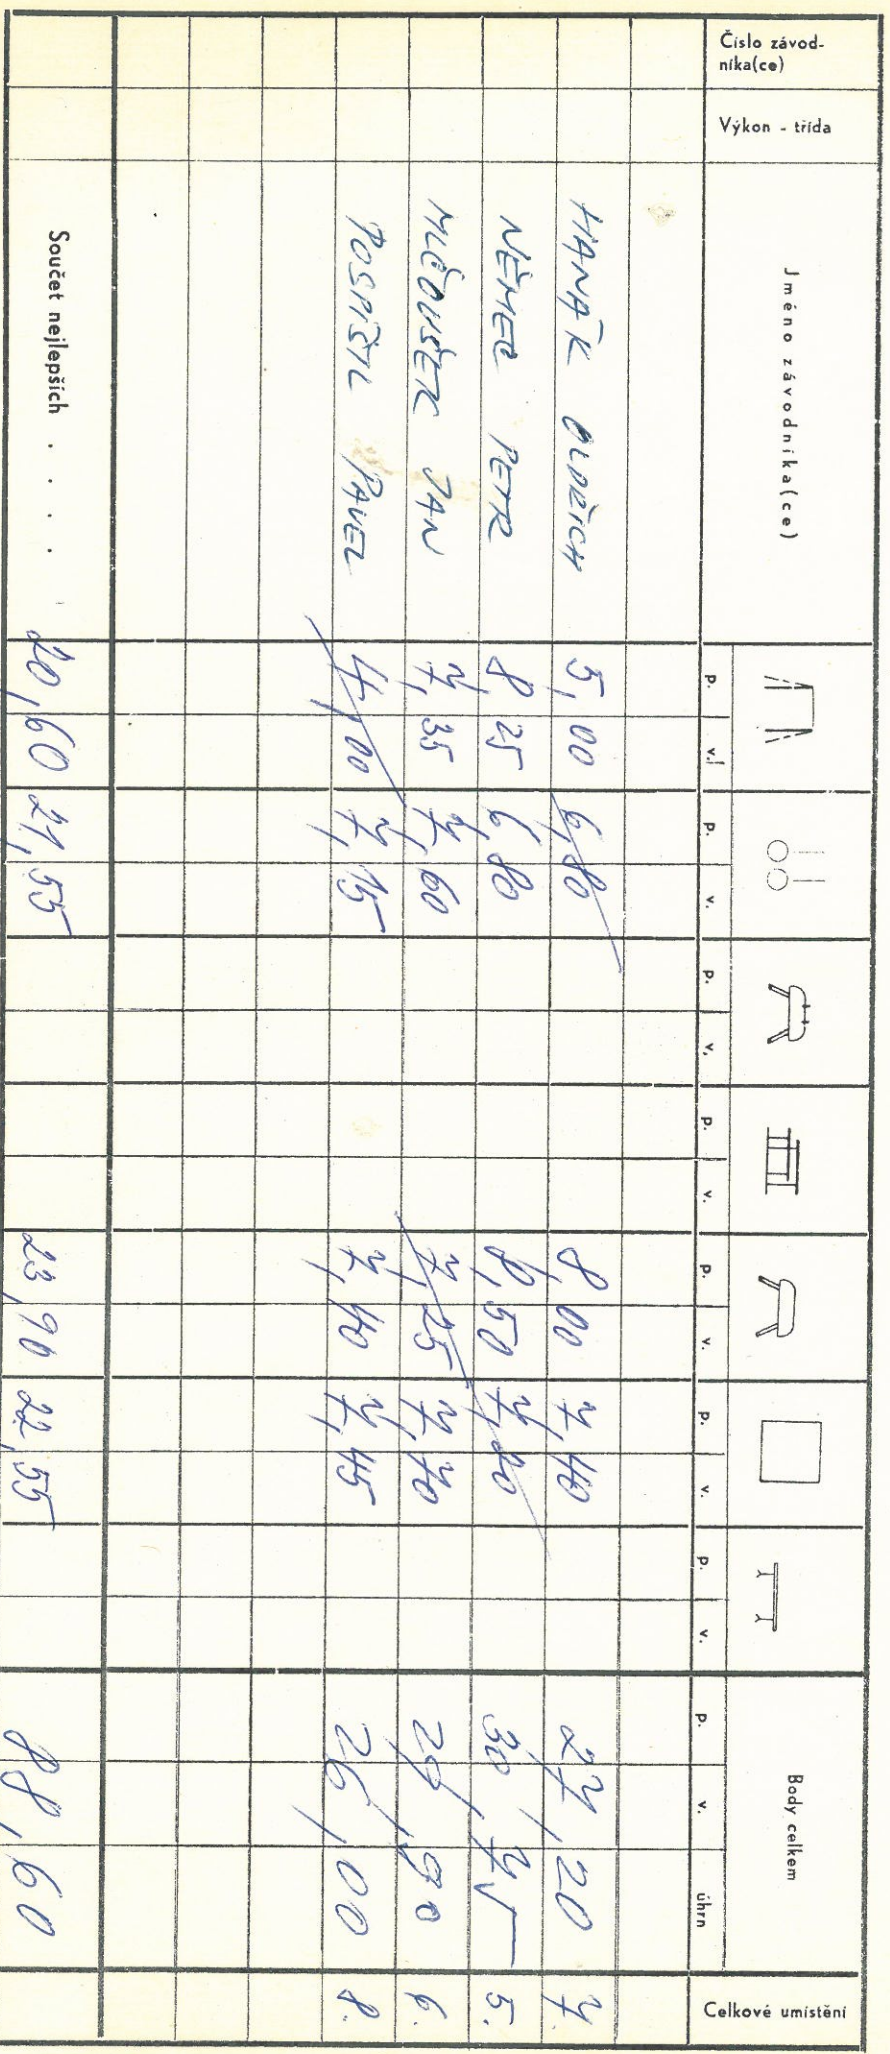 Číslo závod-
níka(ce)
Výkon - třída
Jméno závodníka(ce)
Body celkem
Celkové umístění
p. v. p. v. p. v. p. v. p. v. p. v. p. v. p. v. úhrn
HANÁK OLDŘICH 5,00 6,80 8,00 7,40 27,20 7.
NĚMEC PETR 8,25 6,80 8,50 7,20 30,75 5.
MLČOUŠEK JAN 7,35 7,60 7,25 7,70 29,90 6.
POSPÍŠIL PAVEL 4,00 7,15 7,40 7,45 26,00 8.
Součet nejlepších . . . . 20,60 21,55 23,90 22,55 88,60